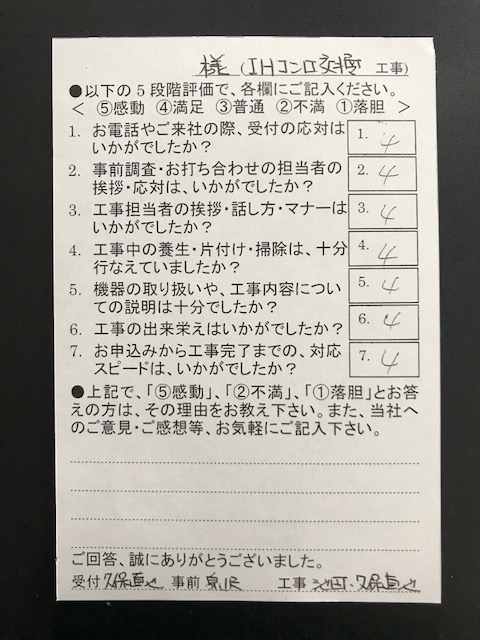 様（IHコンロ交換 工事）
●以下の5段階評価で、各欄にご記入ください。
＜ ⑤感動 ④満足 ③普通 ②不満 ①落胆 ＞
1. お電話やご来社の際、受付の応対は
いかがでしたか？
1. 4
2. 事前調査・お打ち合わせの担当者の
挨拶・応対は、いかがでしたか？
2. 4
3. 工事担当者の挨拶・話し方・マナーは
いかがでしたか？
3. 4
4. 工事中の養生・片付け・掃除は、十分
行なえていましたか？
4. 4
5. 機器の取り扱いや、工事内容につい
ての説明は十分でしたか？
5. 4
6. 工事の出来栄えはいかがでしたか？
6. 4
7. お申込みから工事完了までの、対応
スピードは、いかがでしたか？
7. 4
●上記で、「⑤感動」、「②不満」、「①落胆」とお答
えの方は、その理由をお教え下さい。また、当社へ
のご意見・ご感想等、お気軽にご記入下さい。
ご回答、誠にありがとうございました。
受付 久保直也 事前 工事 池田・久保直也